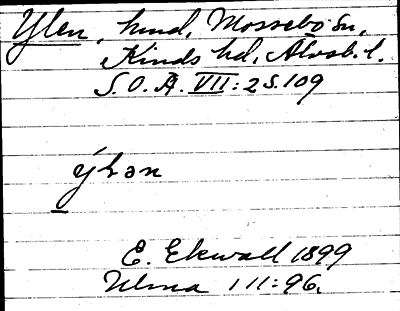 Ylen, hmd, Mossebo sn,
Kinds hd, Älvsb. l.
S.O.Ä. VII:2 S.109
ýlən
E. Ekwall 1899
Ulma 111:96.